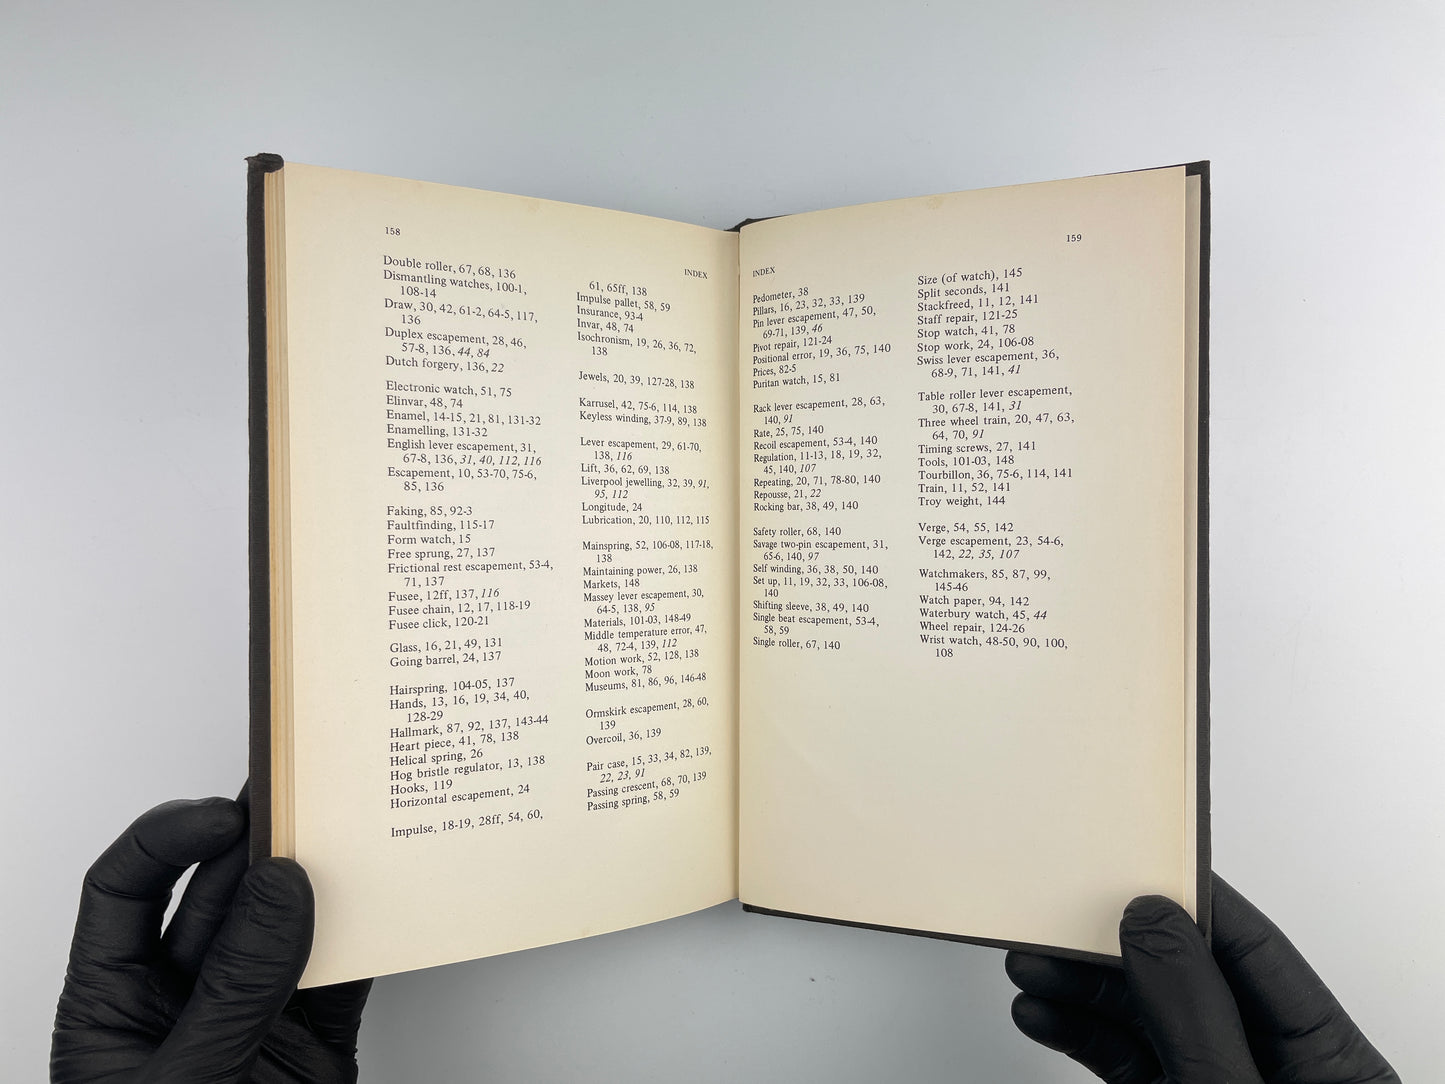 158
INDEX
Double roller, 67, 68, 136
Dismantling watches, 100-1,
108-14
Draw, 30, 42, 61-2, 64-5, 117,
136
Duplex escapement, 28, 46,
57-8, 136, 44, 84
Dutch forgery, 136, 22
Electronic watch, 51, 75
Elinvar, 48, 74
Enamel, 14-15, 21, 81, 131-32
Enamelling, 131-32
English lever escapement, 31,
67-8, 136, 31, 40, 112, 116
Escapement, 10, 53-70, 75-6,
85, 136
Faking, 85, 92-3
Faultfinding, 115-17
Form watch, 15
Free sprung, 27, 137
Frictional rest escapement, 53-4,
71, 137
Fusee, 12ff, 137, 116
Fusee chain, 12, 17, 118-19
Fusee click, 120-21
Glass, 16, 21, 49, 131
Going barrel, 24, 137
Hairspring, 104-05, 137
Hands, 13, 16, 19, 34, 40,
128-29
Hallmark, 87, 92, 137, 143-44
Heart piece, 41, 78, 138
Helical spring, 26
Hog bristle regulator, 13, 138
Hooks, 119
Horizontal escapement, 24
Impulse, 18-19, 28ff, 54, 60,
61, 65ff, 138
Impulse pallet, 58, 59
Insurance, 93-4
Invar, 48, 74
Isochronism, 19, 26, 36, 72,
138
Jewels, 20, 39, 127-28, 138
Karrusel, 42, 75-6, 114, 138
Keyless winding, 37-9, 89, 138
Lever escapement, 29, 61-70,
138, 116
Lift, 36, 62, 69, 138
Liverpool jewelling, 32, 39, 91,
95, 112
Longitude, 24
Lubrication, 20, 110, 112, 115
Mainspring, 52, 106-08, 117-18,
138
Maintaining power, 26, 138
Markets, 148
Massey lever escapement, 30,
64-5, 138, 95
Materials, 101-03, 148-49
Middle temperature error, 47,
48, 72-4, 139, 112
Motion work, 52, 128, 138
Moon work, 78
Museums, 81, 86, 96, 146-48
Ormskirk escapement, 28, 60,
139
Overcoil, 36, 139
Pair case, 15, 33, 34, 82, 139,
22, 23, 91
Passing crescent, 68, 70, 139
Passing spring, 58, 59
159
INDEX
Pedometer, 38
Pillars, 16, 23, 32, 33, 139
Pin lever escapement, 47, 50,
69-71, 139, 46
Pivot repair, 121-24
Positional error, 19, 36, 75, 140
Prices, 82-5
Puritan watch, 15, 81
Rack lever escapement, 28, 63,
140, 91
Rate, 25, 75, 140
Recoil escapement, 53-4, 140
Regulation, 11-13, 18, 19, 32,
45, 140, 107
Repeating, 20, 71, 78-80, 140
Repousse, 21, 22
Rocking bar, 38, 49, 140
Safety roller, 68, 140
Savage two-pin escapement, 31,
65-6, 140, 97
Self winding, 36, 38, 50, 140
Set up, 11, 19, 32, 33, 106-08,
140
Shifting sleeve, 38, 49, 140
Single beat escapement, 53-4,
58, 59
Single roller, 67, 140
Size (of watch), 145
Split seconds, 141
Stackfreed, 11, 12, 141
Staff repair, 121-25
Stop watch, 41, 78
Stop work, 24, 106-08
Swiss lever escapement, 36,
68-9, 71, 141, 41
Table roller lever escapement,
30, 67-8, 141, 31
Three wheel train, 20, 47, 63,
64, 70, 91
Timing screws, 27, 141
Tools, 101-03, 148
Tourbillon, 36, 75-6, 114, 141
Train, 11, 52, 141
Troy weight, 144
Verge, 54, 55, 142
Verge escapement, 23, 54-6,
142, 22, 35, 107
Watchmakers, 85, 87, 99,
145-46
Watch paper, 94, 142
Waterbury watch, 45, 44
Wheel repair, 124-26
Wrist watch, 48-50, 90, 100,
108